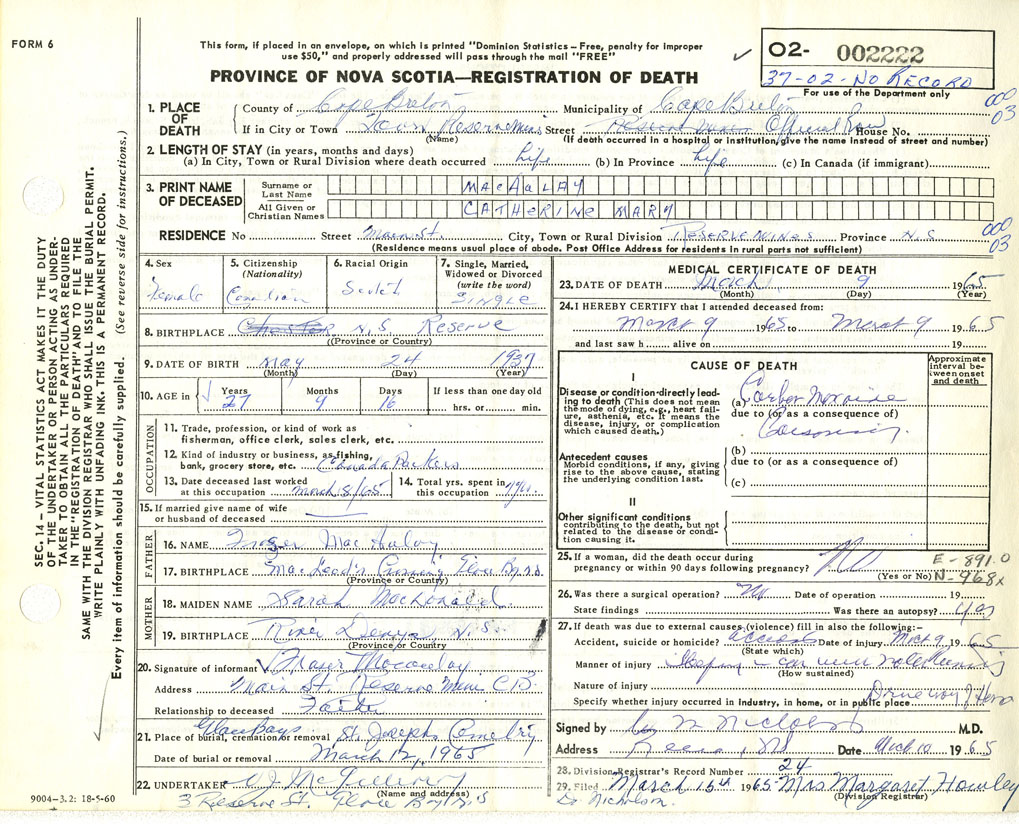 FORM 6
This form, if placed in an envelope, on which is printed "Dominion Statistics – Free, penalty for improper
use $50," and properly addressed will pass through the mail "FREE"
PROVINCE OF NOVA SCOTIA—REGISTRATION OF DEATH
O2- 002222
37-02-NO RECORD
For use of the Department only
000
03
1. PLACE OF DEATH
County of Cape Breton Municipality of Cape Breton
If in City or Town Town Reserve Mines Street Reserve Mines Official Row House No.
(Name) (If death occurred in a hospital or institution, give the name instead of street and number)
2. LENGTH OF STAY (in years, months and days)
(a) In City, Town or Rural Division where death occurred Life (b) In Province Life (c) In Canada (if immigrant)
3. PRINT NAME OF DECEASED
Surname or Last Name MACAULAY
All Given or Christian Names CATHERINE MARY
RESIDENCE No Street Main St. City, Town or Rural Division RESERVE MINES Province N.S
000
03
(Residence means usual place of abode. Post Office Address for residents in rural parts not sufficient)
4. Sex Female
5. Citizenship (Nationality) Canadian
6. Racial Origin Scotch
7. Single, Married, Widowed or Divorced (write the word) SINGLE
8. BIRTHPLACE N.S Reserve
(Province or Country)
9. DATE OF BIRTH May 24 1937
(Month) (Day) (Year)
10. AGE in Years 27 Months 9 Days 16 If less than one day old hrs. or min.
OCCUPATION
11. Trade, profession, or kind of work as
fisherman, office clerk, sales clerk, etc.
12. Kind of industry or business, as fishing,
bank, grocery store, etc. Canada Packers
13. Date deceased last worked
at this occupation March 8/65
14. Total yrs. spent in
this occupation
15. If married give name of wife
or husband of deceased
FATHER
16. NAME Fraser MacAulay
17. BIRTHPLACE MacLeod's Crossing Glace Bay N.S
(Province or Country)
MOTHER
18. MAIDEN NAME Sarah MacDonald
19. BIRTHPLACE River Denys, N.S.
(Province or Country)
20. Signature of informant Fraser Macaulay
Address Main St. Reserve Mines C.B.
Relationship to deceased Father
21. Place of burial, cremation or removal Glace Bay St. Josephs Cemetery
Date of burial or removal March 12, 1965
22. UNDERTAKER V.J. McGillivray
(Name and address)
3 Reserve St. Glace Bay N.S
9004–3.2: 18-5-60
MEDICAL CERTIFICATE OF DEATH
23. DATE OF DEATH March 9 1965
(Month) (Day) (Year)
24. I HEREBY CERTIFY that I attended deceased from:
March 9 1965 to March 9 19.65
and last saw h...... alive on 19
CAUSE OF DEATH
Approximate interval between onset and death
I
Disease or condition directly leading to death (This does not mean the mode of dying, e.g., heart failure, asthenia, etc. It means the disease, injury, or complication which caused death.)
(a) Carbon Monoxide
due to (or as a consequence of)
Antecedent causes
Morbid conditions, if any, giving rise to the above cause, stating the underlying condition last.
(b)
due to (or as a consequence of)
(c)
II
Other significant conditions
contributing to the death, but not related to the disease or condition causing it.
25. If a woman, did the death occur during
pregnancy or within 90 days following pregnancy? No
(Yes or No)
E-891.0
N-968x
26. Was there a surgical operation? No Date of operation 19
State findings Was there an autopsy? yes
27. If death was due to external causes (violence) fill in also the following:–
Accident, suicide or homicide? Date of injury March 9, 1965
(State which)
Manner of injury Sleeping – car
(How sustained)
Nature of injury
Specify whether injury occurred in Industry, in home, or in public place Driveway of Home
Signed by M Nicholson M.D.
Address Date March 10 1965
28. Division Registrar's Record Number 24
29. Filed March 15th 1965 Mrs. Margaret Howley
(Division Registrar)
Dr Nicholson.
SEC. 14 – VITAL STATISTICS ACT MAKES IT THE DUTY
OF THE UNDERTAKER OR PERSON ACTING AS UNDER-
TAKER TO OBTAIN ALL THE PARTICULARS REQUIRED
IN THE "REGISTRATION OF DEATH" AND TO FILE THE
SAME WITH THE DIVISION REGISTRAR WHO SHALL ISSUE THE BURIAL PERMIT.
WRITE PLAINLY WITH UNFADING INK. THIS IS A PERMANENT RECORD.
Every item of information should be carefully supplied. (See reverse side for instructions.)